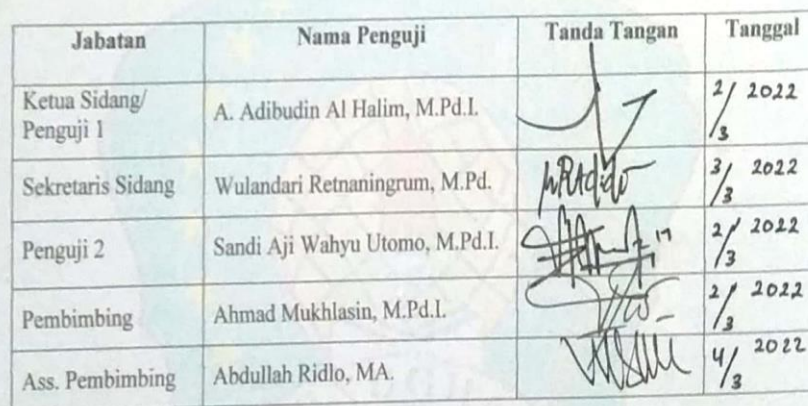 Jabatan Nama Penguji Tanda Tangan Tanggal
Ketua Sidang/
Penguji 1 A. Adibudin Al Halim, M.Pd.I. 2/3 2022
Sekretaris Sidang Wulandari Retnaningrum, M.Pd. 3/3 2022
Penguji 2 Sandi Aji Wahyu Utomo, M.Pd.I. 2/3 2022
Pembimbing Ahmad Mukhlasin, M.Pd.I. 2/3 2022
Ass. Pembimbing Abdullah Ridlo, MA. 4/3 2022